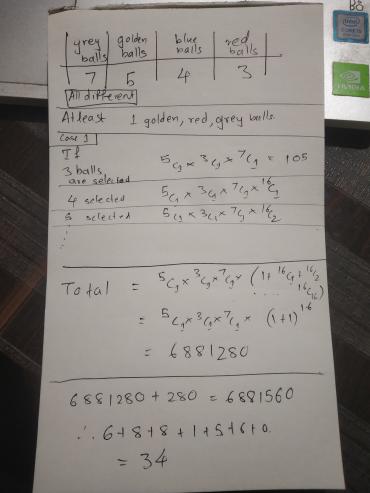 grey balls | golden balls | blue balls | red balls
7 | 5 | 4 | 3
All different
Atleast 1 golden, red, grey balls.
Case 1
If
3 balls are selected ⁵C₁ × ³C₁ × ⁷C₁ = 105
4 selected ⁵C₁ × ³C₁ × ⁷C₁ × ¹⁶C₁
5 selected ⁵C₁ × ³C₁ × ⁷C₁ × ¹⁶C₂
⋮
Total = ⁵C₁ × ³C₁ × ⁷C₁ × (1 + ¹⁶C₁ + ¹⁶C₂ ... ¹⁶C₁₆)
= ⁵C₁ × ³C₁ × ⁷C₁ × (1+1)¹⁶
= 6881280
6881280 + 280 = 6881560
∴ 6+8+8+1+5+6+0.
= 34
intel
CORE i5
NVIDIA